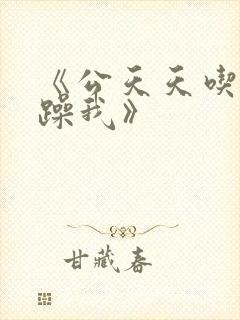 《公天天喫
躁我》
甘藏春